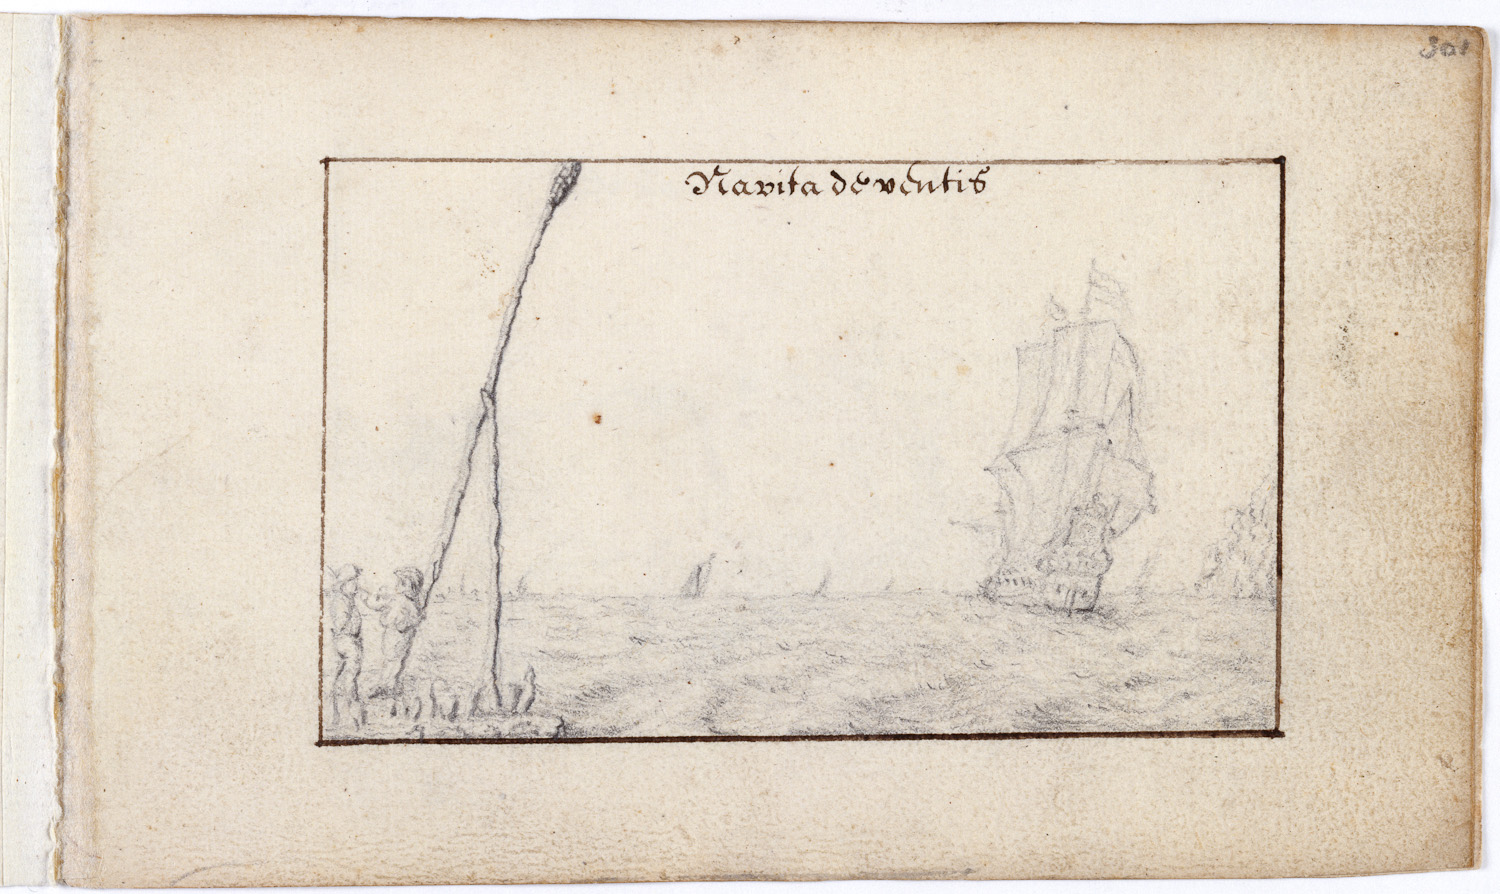 301
Navita de ventis